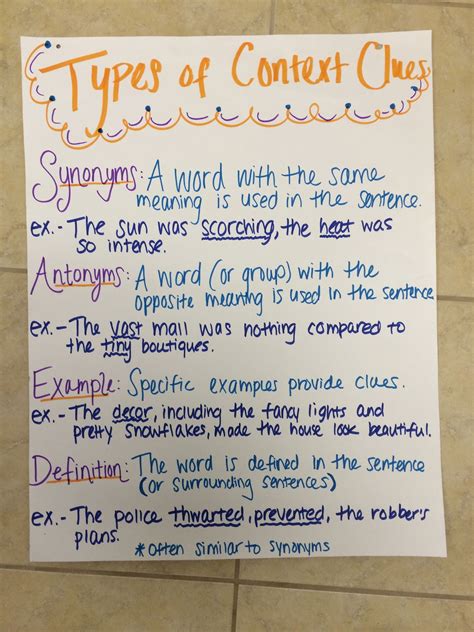 Types of Context Clues
Synonyms: A word with the same
meaning is used in the sentence.
ex.- The sun was scorching, the heat was
so intense.
Antonyms: A word (or group) with the
opposite meaning is used in the sentence
ex.- The vast mall was nothing compared to
the tiny boutiques.
Example: Specific examples provide clues.
ex.- The decor, including the fancy lights and
pretty snowflakes, made the house look beautiful.
Definition: The word is defined in the sentence
(or surrounding sentences)
ex.- The police thwarted, prevented, the robber's
plans.
*often similar to synonyms